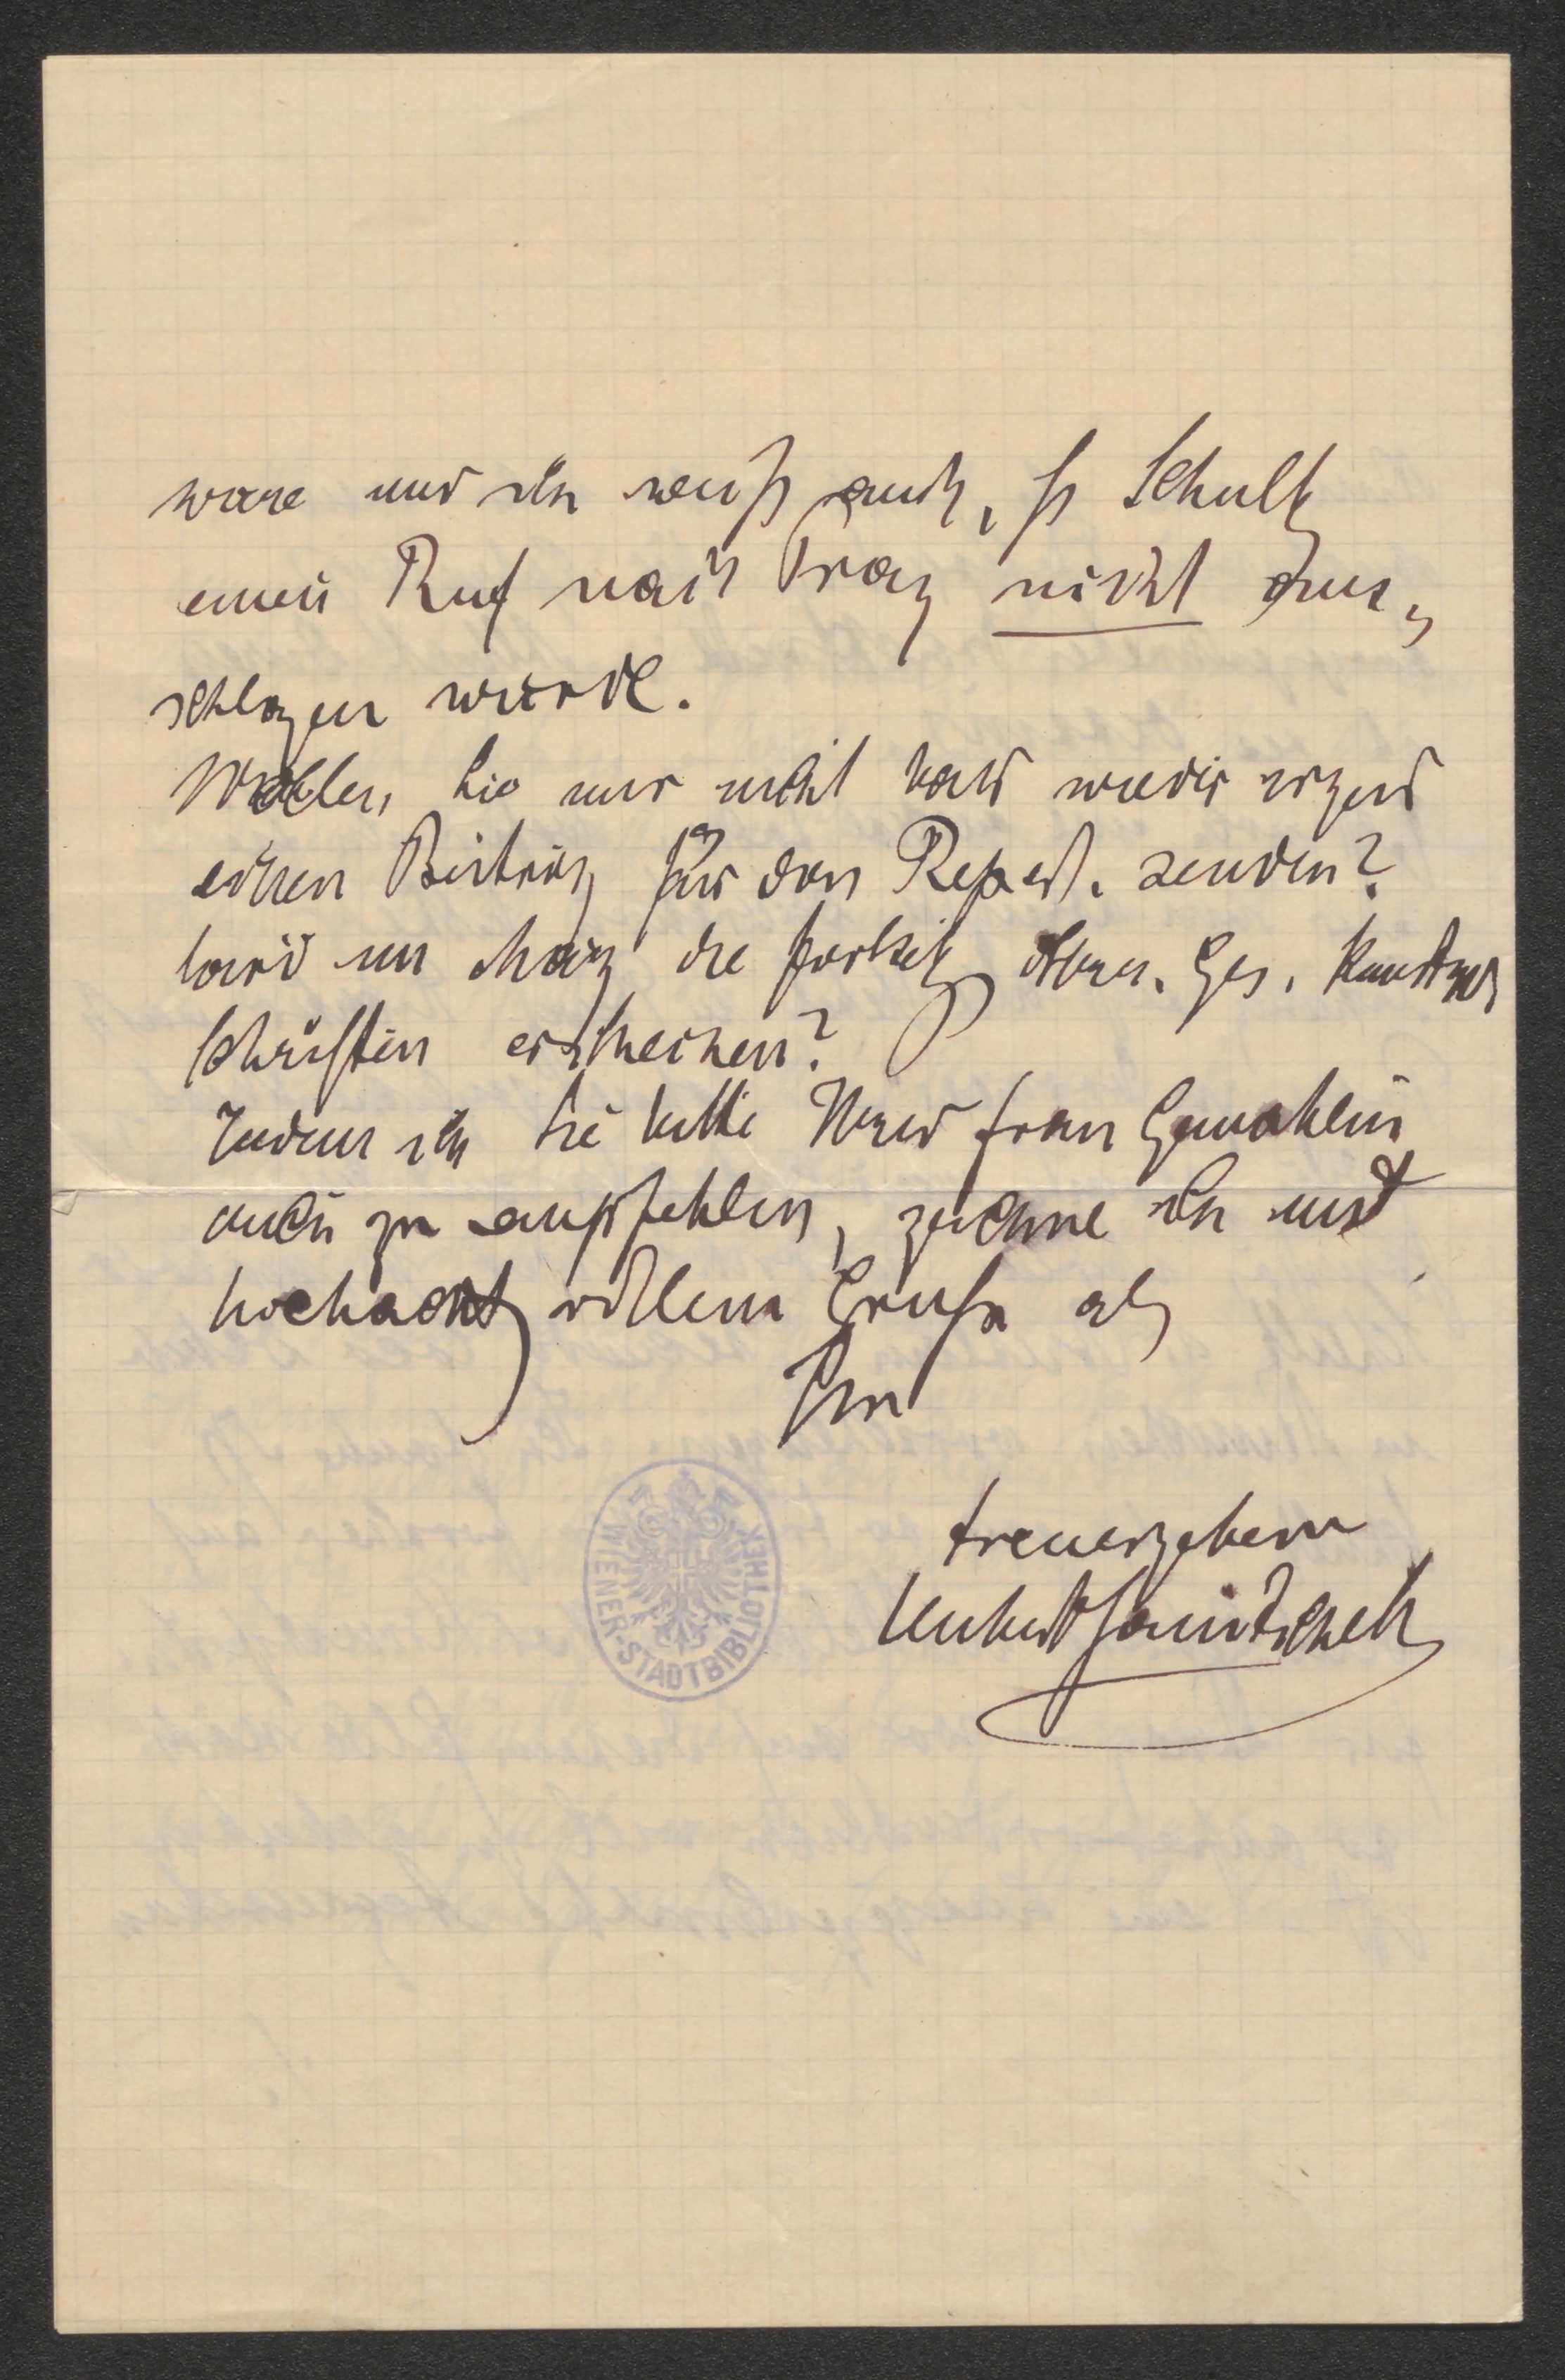 wäre und ich weiß auch, ds Schultz
einen Ruf nach Prag nicht aus-
schlagen würde.
Wollen Sie mir nicht bald wieder irgend
einen Beitrag für das Repert. senden?
Wird im März die Fortsetzg Ihrer Ges. Kunsthist.
Schriften erscheinen?
Indem ich Sie bitte Ihrer Frau Gemahlin
mich zu empfehlen, zeichne ich mit
hochachtgsvollem Gruße als
Ihr
treuergebener
Hubert Janitschek
WIENER-STADTBIBLIOTHEK